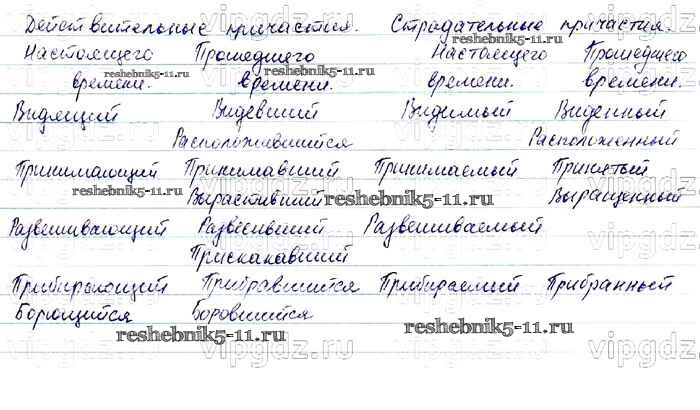 Действительные причастия. Страдательные причастия.
Настоящего Прошедшего Настоящего Прошедшего
reshebnik5-11.ru
времени. времени. времени. времени.
Видящий Видевший Видимый Виденный
Расположившийся Расположенный
Принимающий Принимавший Принимаемый Принятый
reshebnik5-11.ru
Вырастивший reshebnik5-11.ru Выращенный
Развешивающий Развесивший Развешиваемый
Прискакавший
Прибирающий Прибравшийся Прибираемый Прибранный
Борющийся Боровшийся
reshebnik5-11.ru reshebnik5-11.ru
vipgdz.ru vipgdz.ru